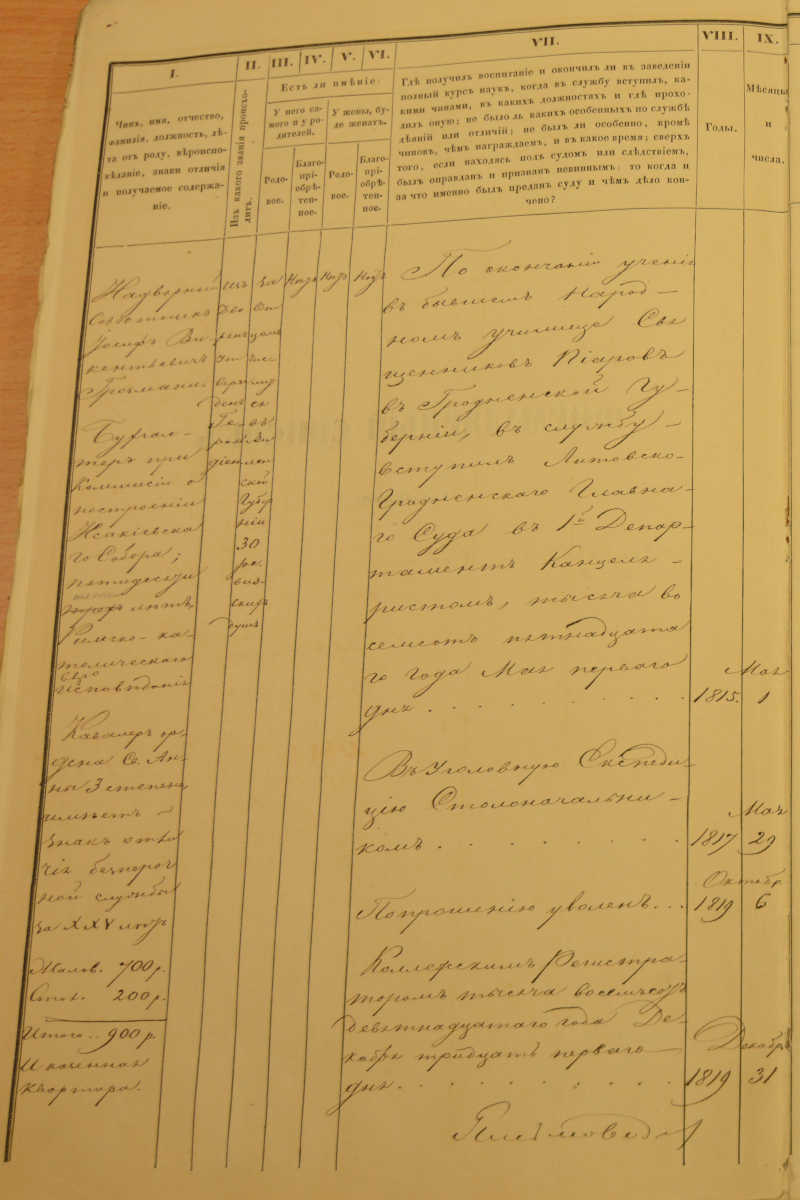 I.
II.
III.
IV.
V.
VI.
VII.
VIII.
IX.
Чинъ, имя, отчество,
фамилія, должность, лѣ-
та отъ роду, вѣроиспо-
вѣданіе, знаки отличія
и получаемое содержа-
ніе.
Изъ какого званія происхо-
дитъ.
Есть ли имѣніе:
У него са-
мого и у ро-
дителей.
У жены, бу-
де женатъ.
Родо-
вое.
Благо-
прі-
обрѣ-
тен-
ное.
Родо-
вое.
Благо-
прі-
обрѣ-
тен-
ное.
Гдѣ получилъ воспитаніе и окончилъ ли въ заведеніи
полный курсъ наукъ, когда въ службу вступилъ, ка-
кими чинами, въ какихъ должностяхъ и гдѣ прохо-
дилъ оную; не было ль какихъ особенныхъ по службѣ
дѣяній или отличій; не былъ ли особенно, кромѣ
чиновъ, чѣмъ награждаемъ, и въ какое время; сверхъ
того, если находясь подъ судомъ или слѣдствіемъ,
былъ оправданъ и признанъ невиннымъ: то когда и
за что именно былъ преданъ суду и чѣмъ дѣло кон-
чено?
Годы.
Мѣсяцы
и
числа.
Надворный
Совѣтникъ
Іосифъ Ви-
кентьевичъ
Бухгал-
теръ при
Коммисіи о
построеніи
Исакіевска
го Собора;
пятидесяти
лѣтъ,
Римско-ка-
толическаго
исповѣданія
Кавалеръ ор-
дена Св. Ан-
ны 3 степени
имѣетъ
знакъ отли
чія безпороч
ной службы
за XXV лѣтъ
Жалов. 700 р.
Стол. 200 р.
Итого .. 900 р.
и казенная
квартира.
изъ
дво
рянъ
за
ской
Губер
ніи
30
ре-
виз-
скихъ
душъ
По окончаніи ученія
въ бывшемъ Народ-
номъ училище Свя
щенниковъ Піаровъ
въ Гродненской Гу-
берніи, въ службу
вступилъ Литовско-
Гродненскаго Главна-
го Суда въ 1й Депар-
таментъ Канцеля-
ристомъ, тысяча во
семсотъ пятнадцата
го года Мая перваго
дня . . . . . . . . .
Мая
1815. 1
Въ Уголовную Експеди-
цію Столоначальни-
комъ . . . . . . . .
Мая
1817 29
По прошенію уволенъ . . .
Октябр
1819 6
Коллежскимъ Регистра
торомъ тысяча восемьсотъ
девятнадцатаго года Де-
кабря тридцать перваго
дня . . . . . . . .
Декабря
1819 31